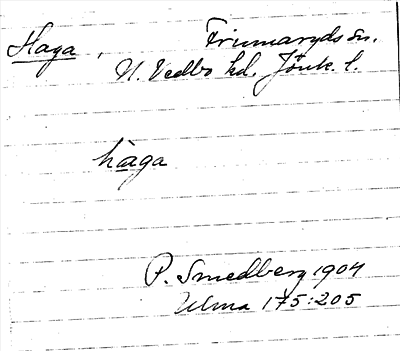 Haga, Frinnaryds sn.
N. Vedbo hd. Jönk. l.
hàga
P. Smedberg 1904
Ulma 175:205